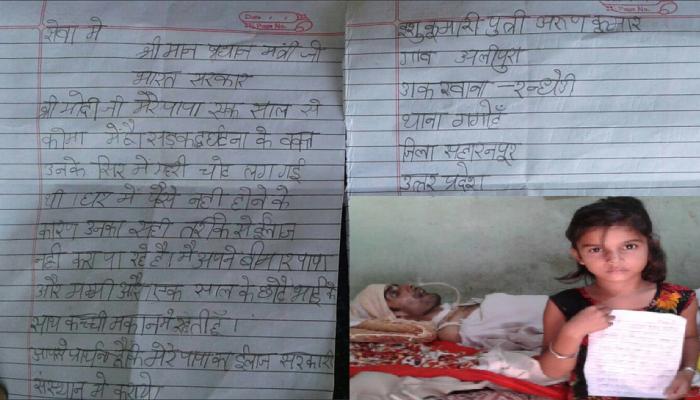 सेवा मे
श्री मान प्रधान मंत्री जी
भारत सरकार
श्री मोदी जी मेरे पापा एक साल से
कोमा में है सड़क दुर्घटना के वक्त
उनके सिर मे गहरी चोट लग गई
थी । घर में पैसे नही होने के
कारण उनका सही तरीके से ईलाज
नही करा पा रहे है। मै अपने बीमार पापा
और मम्मी और एक साल के छोटे भाई के
साथ कच्ची मकान मे रहती हूँ ।
आपसे प्रार्थना है कि मेरे पापा का ईलाज सरकारी
संस्थान मे कराये।
Date
Page No.
इशु कुमारी पुत्री अरुण कुमार
गांव अलीपुरा
डाक खाना - रन्धेडी
थाना गंगोह
जिला सहारनपुर
उत्तर प्रदेश
Page No.